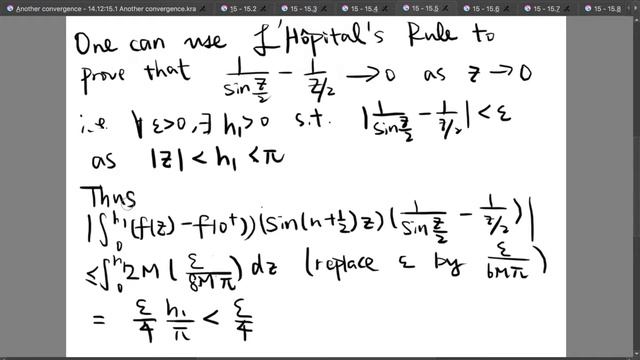 Another convergence - 14.12:15.1 Another convergence.kra
15 - 15.2
15 - 15.3
15 - 15.4
15 - 15.5
15 - 15.6
15 - 15.7
15 - 15.8
One can use L'Hôpital's Rule to
prove that 1/sin(z/2) − 1/(z/2) → 0 as z → 0
i.e. ∀ ε>0, ∃ h₁>0 s.t. |1/sin(z/2) − 1/(z/2)| < ε
as |z| < h₁ < π
Thus
|∫₀^h₁ (f(z) − f(0⁺)) (sin(n+½)z) (1/sin(z/2) − 1/(z/2))|
≤ ∫₀^h₁ 2M (ε/(8Mπ)) dz (replace ε by ε/(6Mπ))
= ε/4 h₁/π < ε/4